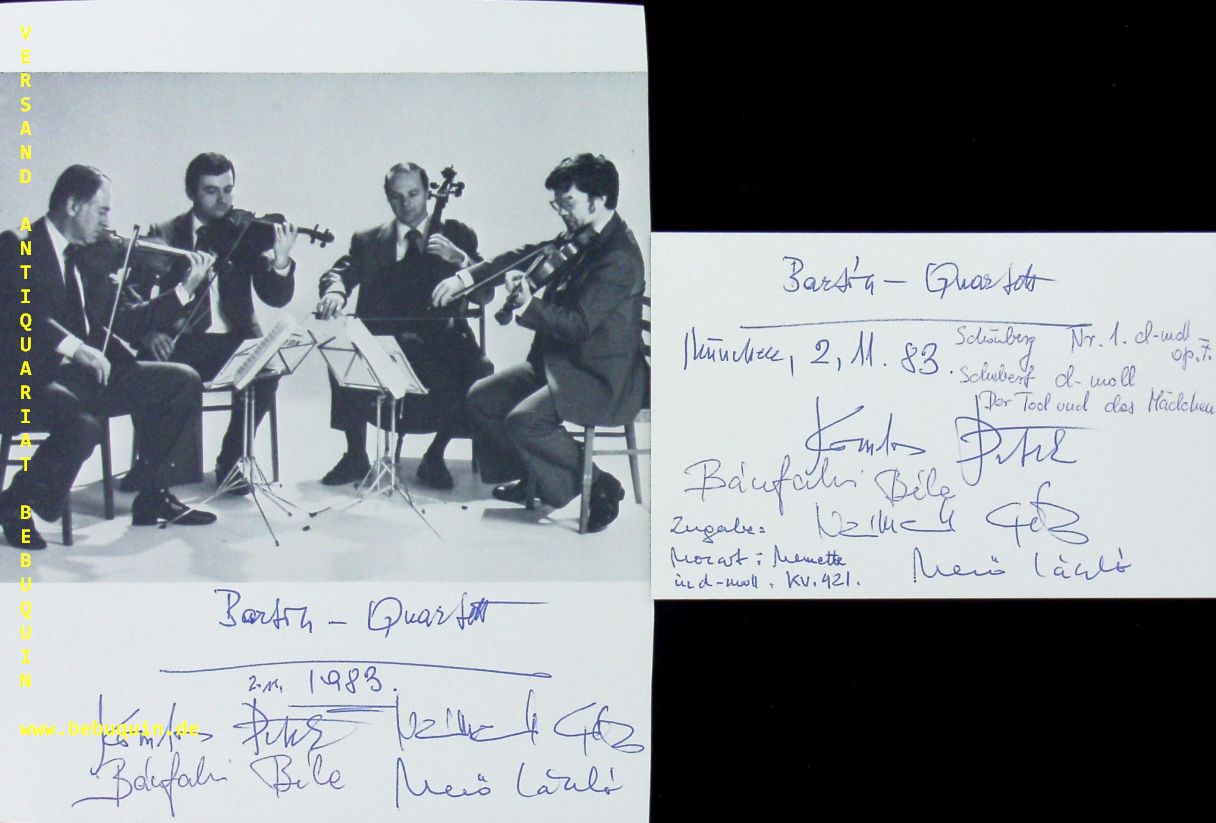 VERSAND ANTIQUARIAT BEBUQUIN
www.bebuquin.de
Bartók – Quartett
2.11. 1983.
Komlós Péter Németh Géza
Bánfalvi Béla Mező László
Bartók – Quartett
München, 2, 11. 83.
Schönberg Nr. 1. d-moll
op. 7.
Schubert d-moll
Der Tod und das Mädchen
Komlós Péter
Bánfalvi Béla
Németh Géza
Mező László
Zugabe:
Mozart: Menuette
in d-moll, KV. 421.